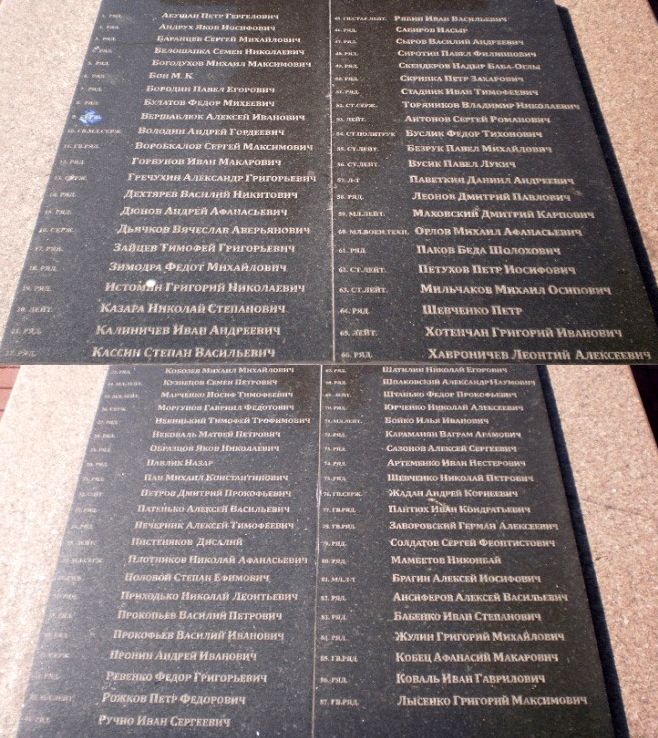 1. РЯД. АБУШАН ПЕТР ГЕРГЕЛОВИЧ
РЯД. АНДРУХ ЯКОВ ИОСИФОВИЧ
3. РЯД. БАРАНЦЕВ СЕРГЕЙ МИХАЙЛОВИЧ
РЯД. БЕЛОШАПКА СЕМЕН НИКОЛАЕВИЧ
РЯД. БОГОДУХОВ МИХАИЛ МАКСИМОВИЧ
6. РЯД. БОН М. К.
7. РЯД. БОРОДИН ПАВЕЛ ЕГОРОВИЧ
8. РЯД. БУЛАТОВ ФЕДОР МИХЕЕВИЧ
9. ВЕРШАБЛЮК АЛЕКСЕЙ ИВАНОВИЧ
10. ГВ.МЛ.СЕРЖ. ВОЛОДИН АНДРЕЙ ГОРДЕЕВИЧ
11. ГВ.РЯД. ВОРОБКАЛОВ СЕРГЕЙ МАКСИМОВИЧ
12. РЯД. ГОРБУНОВ ИВАН МАКАРОВИЧ
13. СЕРЖ. ГРЕЧУХИН АЛЕКСАНДР ГРИГОРЬЕВИЧ
14. РЯД. ДЕХТЯРЕВ ВАСИЛИЙ НИКИТОВИЧ
15. РЯД. ДЮНОВ АНДРЕЙ АФАНАСЬЕВИЧ
16. СЕРЖ. ДЬЯЧКОВ ВЯЧЕСЛАВ АВЕРЬЯНОВИЧ
17. РЯД. ЗАЙЦЕВ ТИМОФЕЙ ГРИГОРЬЕВИЧ
18. РЯД. ЗИМОДРА ФЕДОТ МИХАЙЛОВИЧ
19. РЯД. ИСТОМИН ГРИГОРИЙ НИКОЛАЕВИЧ
20. ЛЕЙТ. КАЗАРА НИКОЛАЙ СТЕПАНОВИЧ
21. РЯД. КАЛИНИЧЕВ ИВАН АНДРЕЕВИЧ
22. РЯД. КАССИН СТЕПАН ВАСИЛЬЕВИЧ
45. ГВ.СТ.ЛЕЙТ. РЯБИН ИВАН ВАСИЛЬЕВИЧ
46. РЯД. САБИРОВ НАСЫР
47. РЯД. СЫРОВ ВАСИЛИЙ АНДРЕЕВИЧ
48. РЯД. СИРОТИН ПАВЕЛ ФИЛИППОВИЧ
49. РЯД. СКЕНДЕРОВ НАДЫР БАБА-ОГЛЫ
50. РЯД. СКРИПКА ПЕТР ЗАХАРОВИЧ
51. РЯД. СТАДНИК ИВАН ТИМОФЕЕВИЧ
52. СТ.СЕРЖ. ТОРЯНИКОВ ВЛАДИМИР НИКОЛАЕВИЧ
53. ЛЕЙТ. АНТОНОВ СЕРГЕЙ РОМАНОВИЧ
54. СТ.ПОЛИТРУК БУСЛИК ФЕДОР ТИХОНОВИЧ
55. СТ.ЛЕЙТ. БЕЗРУК ПАВЕЛ МИХАЙЛОВИЧ
56. СТ.ЛЕЙТ. ВУСИК ПАВЕЛ ЛУКИЧ
57. Л-Т ПАВЕТКИН ДАНИИЛ АНДРЕЕВИЧ
58. РЯД. ЛЕОНОВ ДМИТРИЙ ПАВЛОВИЧ
59. МЛ.ЛЕЙТ. МАХОВСКИЙ ДМИТРИЙ КАРПОВИЧ
60. МЛ.ВОЕН.ТЕХН. ОРЛОВ МИХАИЛ АФАНАСЬЕВИЧ
61. РЯД. ПАКОВ БЕДА ШОЛОХОВИЧ
62. СТ.ЛЕЙТ. ПЕТУХОВ ПЕТР ИОСИФОВИЧ
63. СТ.ЛЕЙТ. МИЛЬЧАКОВ МИХАИЛ ОСИПОВИЧ
64. РЯД. ШЕВЧЕНКО ПЕТР
65. ЛЕЙТ. ХОТЕНЧАН ГРИГОРИЙ ИВАНОВИЧ
66. РЯД. ХАВРОНИЧЕВ ЛЕОНТИЙ АЛЕКСЕЕВИЧ
23. РЯД. КОБОЗЕВ МИХАИЛ МИХАЙЛОВИЧ
КУЗНЕЦОВ СЕМЕН ПЕТРОВИЧ
МАРЧЕНКО ИОСИФ ТИМОФЕЕВИЧ
МОРГУНОВ ГАВРИИЛ ФЕДОТОВИЧ
НЕВИЦКИЙ ТИМОФЕЙ ТРОФИМОВИЧ
НЕКОВАЛЬ МАТВЕЙ ПЕТРОВИЧ
ОБРАЗЦОВ ЯКОВ НИКОЛАЕВИЧ
ПАВЛИК НАЗАР
ПАН МИХАИЛ КОНСТАНТИНОВИЧ
ПЕТРОВ ДМИТРИЙ ПРОКОФЬЕВИЧ
ПАТЕНЬКО АЛЕКСЕЙ ВАСИЛЬЕВИЧ
ПЕЧЕРНИК АЛЕКСЕЙ ТИМОФЕЕВИЧ
ПИСТЕНЯКОВ ДИСАЛИЙ
ПЛОТНИКОВ НИКОЛАЙ АФАНАСЬЕВИЧ
ПОЛОВОЙ СТЕПАН ЕФИМОВИЧ
ПРИХОДЬКО НИКОЛАЙ ЛЕОНТЬЕВИЧ
ПРОКОПЬЕВ ВАСИЛИЙ ПЕТРОВИЧ
ПРОКОФЬЕВ ВАСИЛИЙ ИВАНОВИЧ
ПРОНИН АНДРЕЙ ИВАНОВИЧ
РЕВЕНКО ФЕДОР ГРИГОРЬЕВИЧ
РОЖКОВ ПЕТР ФЕДОРОВИЧ
РУЧНО ИВАН СЕРГЕЕВИЧ
67. РЯД. ШАТИЛИН НИКОЛАЙ ЕГОРОВИЧ
68. РЯД. ШПАКОВСКИЙ АЛЕКСАНДР НАУМОВИЧ
69. ЛЕЙТ. ШТАНЬКО ФЕДОР ПРОКОФЬЕВИЧ
70. РЯД. ЮРЧЕНКО НИКОЛАЙ АЛЕКСЕЕВИЧ
71. МЛ.ЛЕЙТ. БОЙКО ИЛЬЯ ИВАНОВИЧ
72. РЯД. КАРАМАНЯН ВАГРАМ АРАМОВИЧ
73. РЯД. САЗОНОВ АЛЕКСЕЙ СЕРГЕЕВИЧ
74. РЯД. АРТЕМЕНКО ИВАН НЕСТЕРОВИЧ
75. РЯД. ШЕВЧЕНКО НИКОЛАЙ ПЕТРОВИЧ
76. ГВ.СЕРЖ. ЖАДАН АНДРЕЙ КОРНЕЕВИЧ
77. ГВ.РЯД. ПАНТЮХ ИВАН КОНДРАТЬЕВИЧ
78. ГВ.РЯД. ЗАВОРОВСКИЙ ГЕРМАН АЛЕКСЕЕВИЧ
79. РЯД. СОЛДАТОВ СЕРГЕЙ ФЕОКТИСТОВИЧ
80. РЯД. МАМБЕТОВ НИКОНБАЙ
81. МЛ.Л-Т БРАГИН АЛЕКСЕЙ ИОСИФОВИЧ
82. РЯД. АНСИФЕРОВ АЛЕКСЕЙ ВАСИЛЬЕВИЧ
83. РЯД. БАБЕНКО ИВАН СТЕПАНОВИЧ
84. РЯД. ЖУЛИН ГРИГОРИЙ МИХАЙЛОВИЧ
85. ГВ.РЯД. КОБЕЦ АФАНАСИЙ МАКАРОВИЧ
86. РЯД. КОВАЛЬ ИВАН ГАВРИЛОВИЧ
87. ГВ.РЯД. ЛЫСЕНКО ГРИГОРИЙ МАКСИМОВИЧ